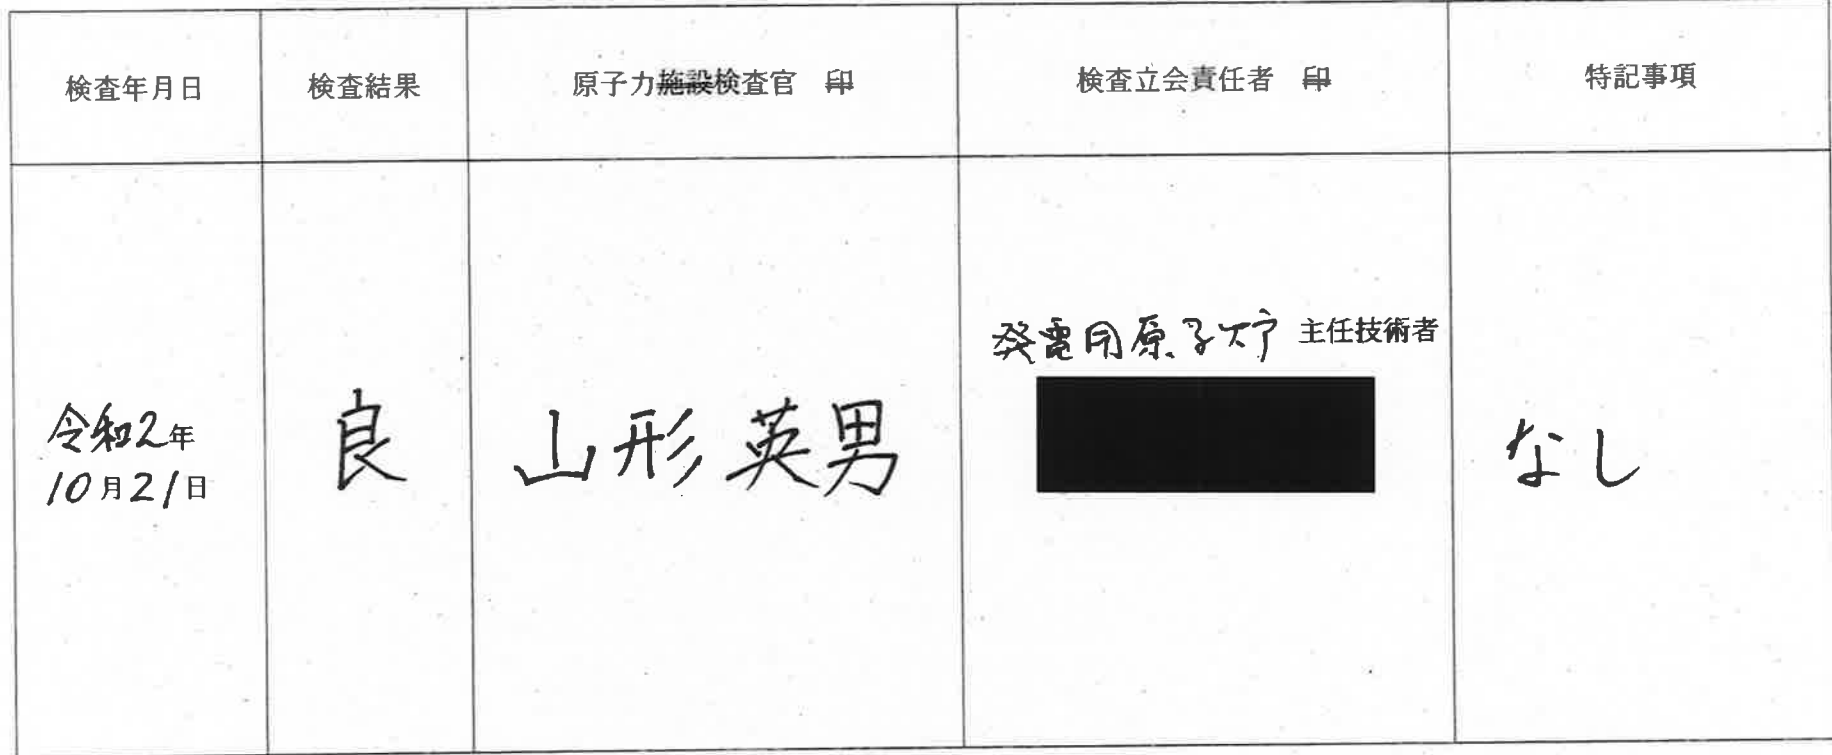 検査年月日
検査結果
原子力施設検査官 印
検査立会責任者 印
特記事項
令和2年
10月21日
良
山形 英男
発電用原子炉 主任技術者
なし